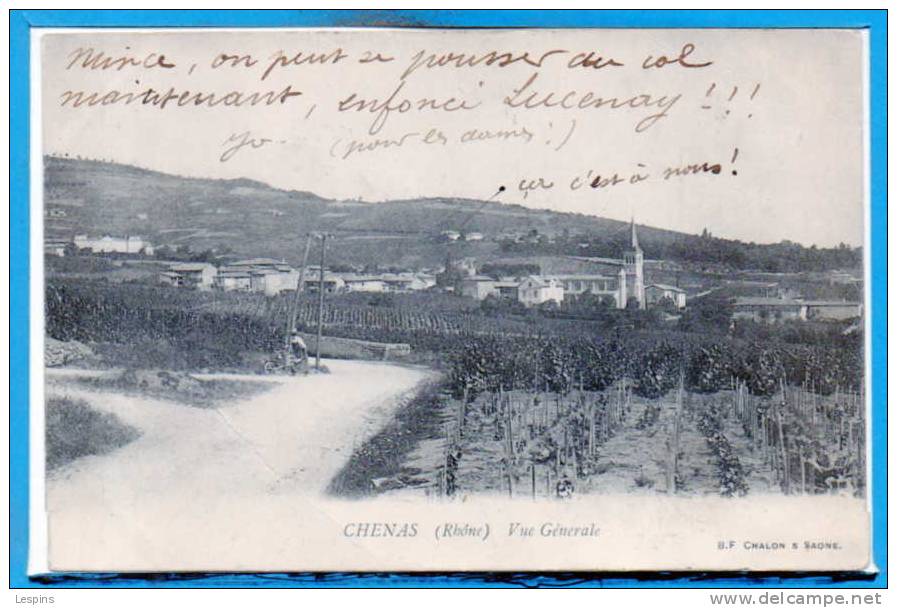 Mince, on peut se pousser du col
maintenant, enfoncé Lucenay!!!
yo. (pour les dames!)
ça c'est à nous!
CHENAS (Rhône) Vue Génerale
B.F CHALON S SAONE.
Lespins
www.delcampe.net